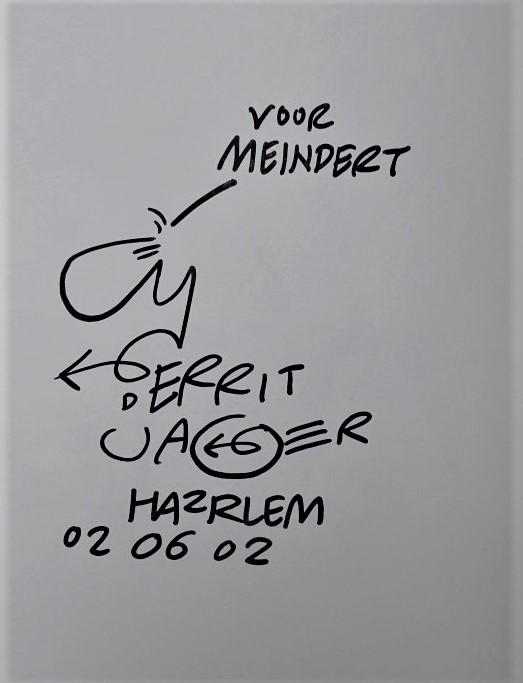 VOOR
MEINDERT
GERRIT
D
JAGER
HA2RLEM
02 06 02